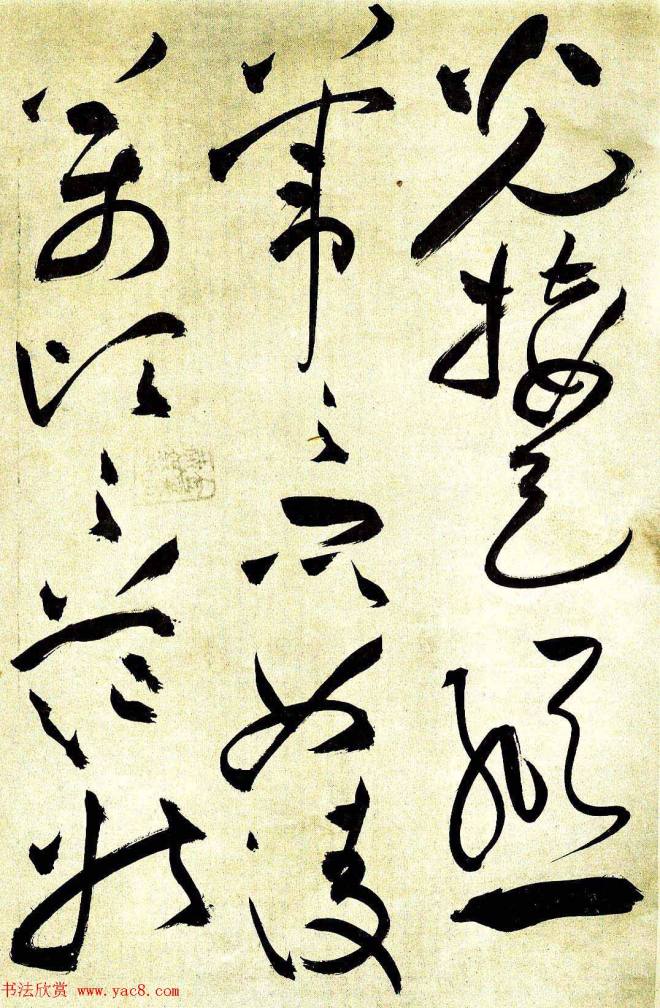 光接天縱一
葦之所如凌
萬頃之茫然
书法欣赏 www.yac8.com